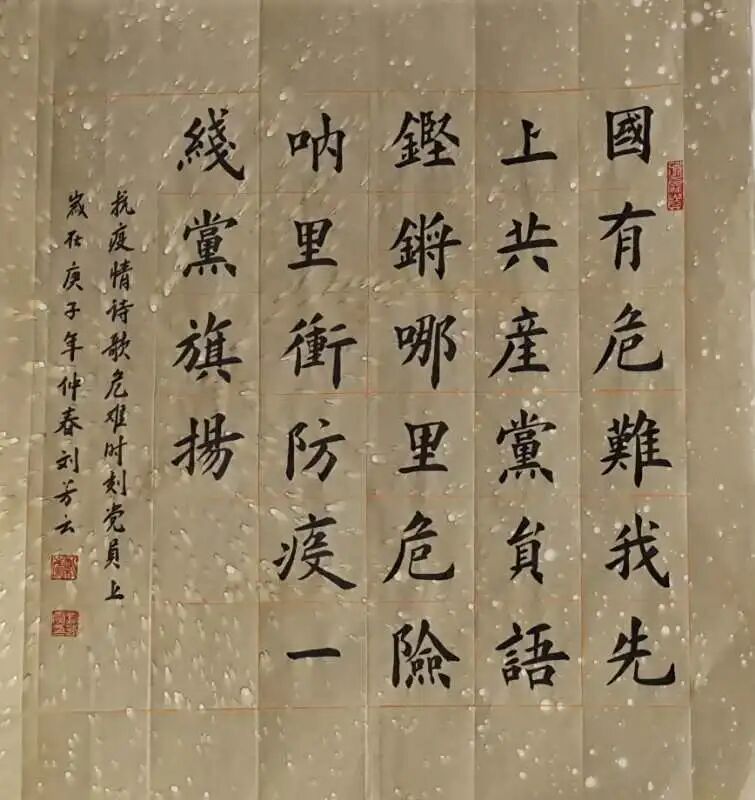 國有危難我先
上共産黨員語
鏗鏘哪里危險
吶里衝防疫一
綫黨旗揚
抗疫情诗歌危难时刻党員上
歲在庚子年仲春刘芳云